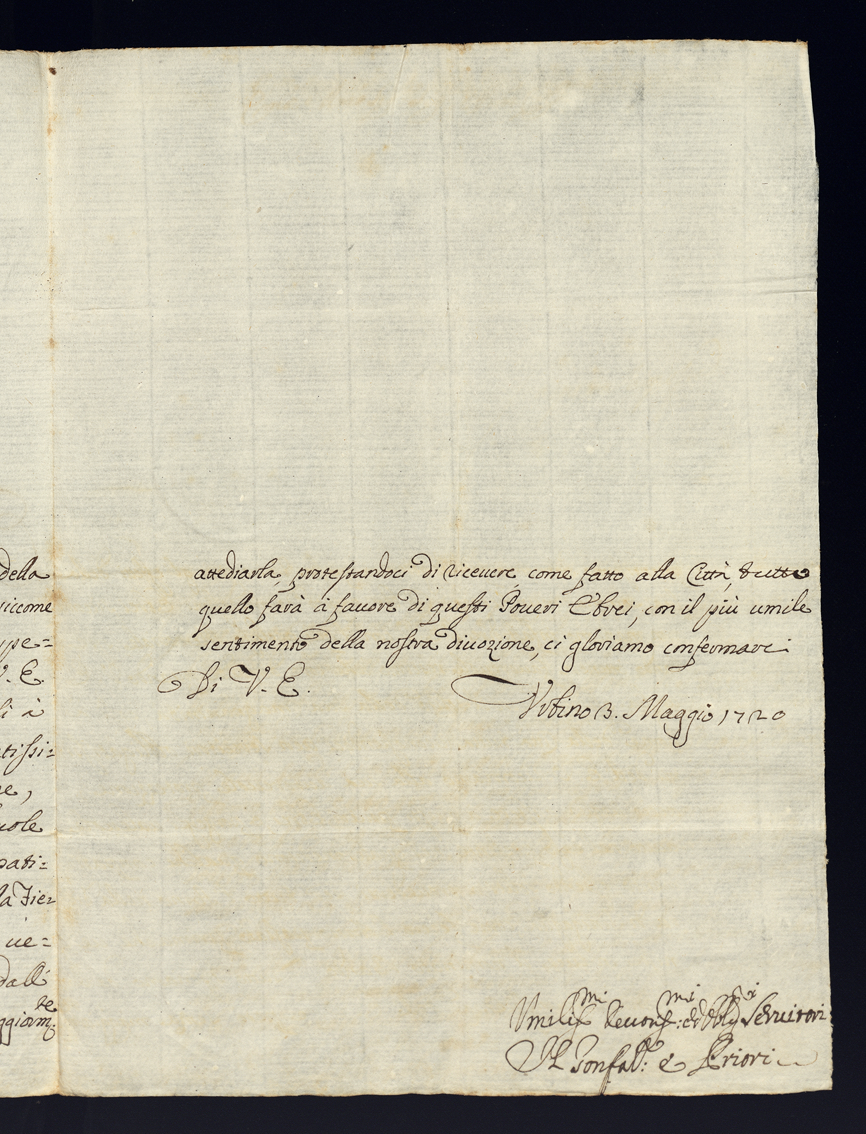 della
siccome
V. E.
li à
tissi=
ne,
uole
pati=
la Fie=
ue=
dall'
ggiam:te
attediarla, protestandoci di riceuere, come fatto alla Città, tutto
quello farà à fauore di questi Poueri Ebrei, con il più umile
sentimento della nostra diuozione, ci gloriamo confermarci
Di V. E.
Vrbino 3. Maggio 1720
Vmiliss:mi deuotiss:mi ed Obbl:mi Seruitori
Il Gonfal:re e Priori